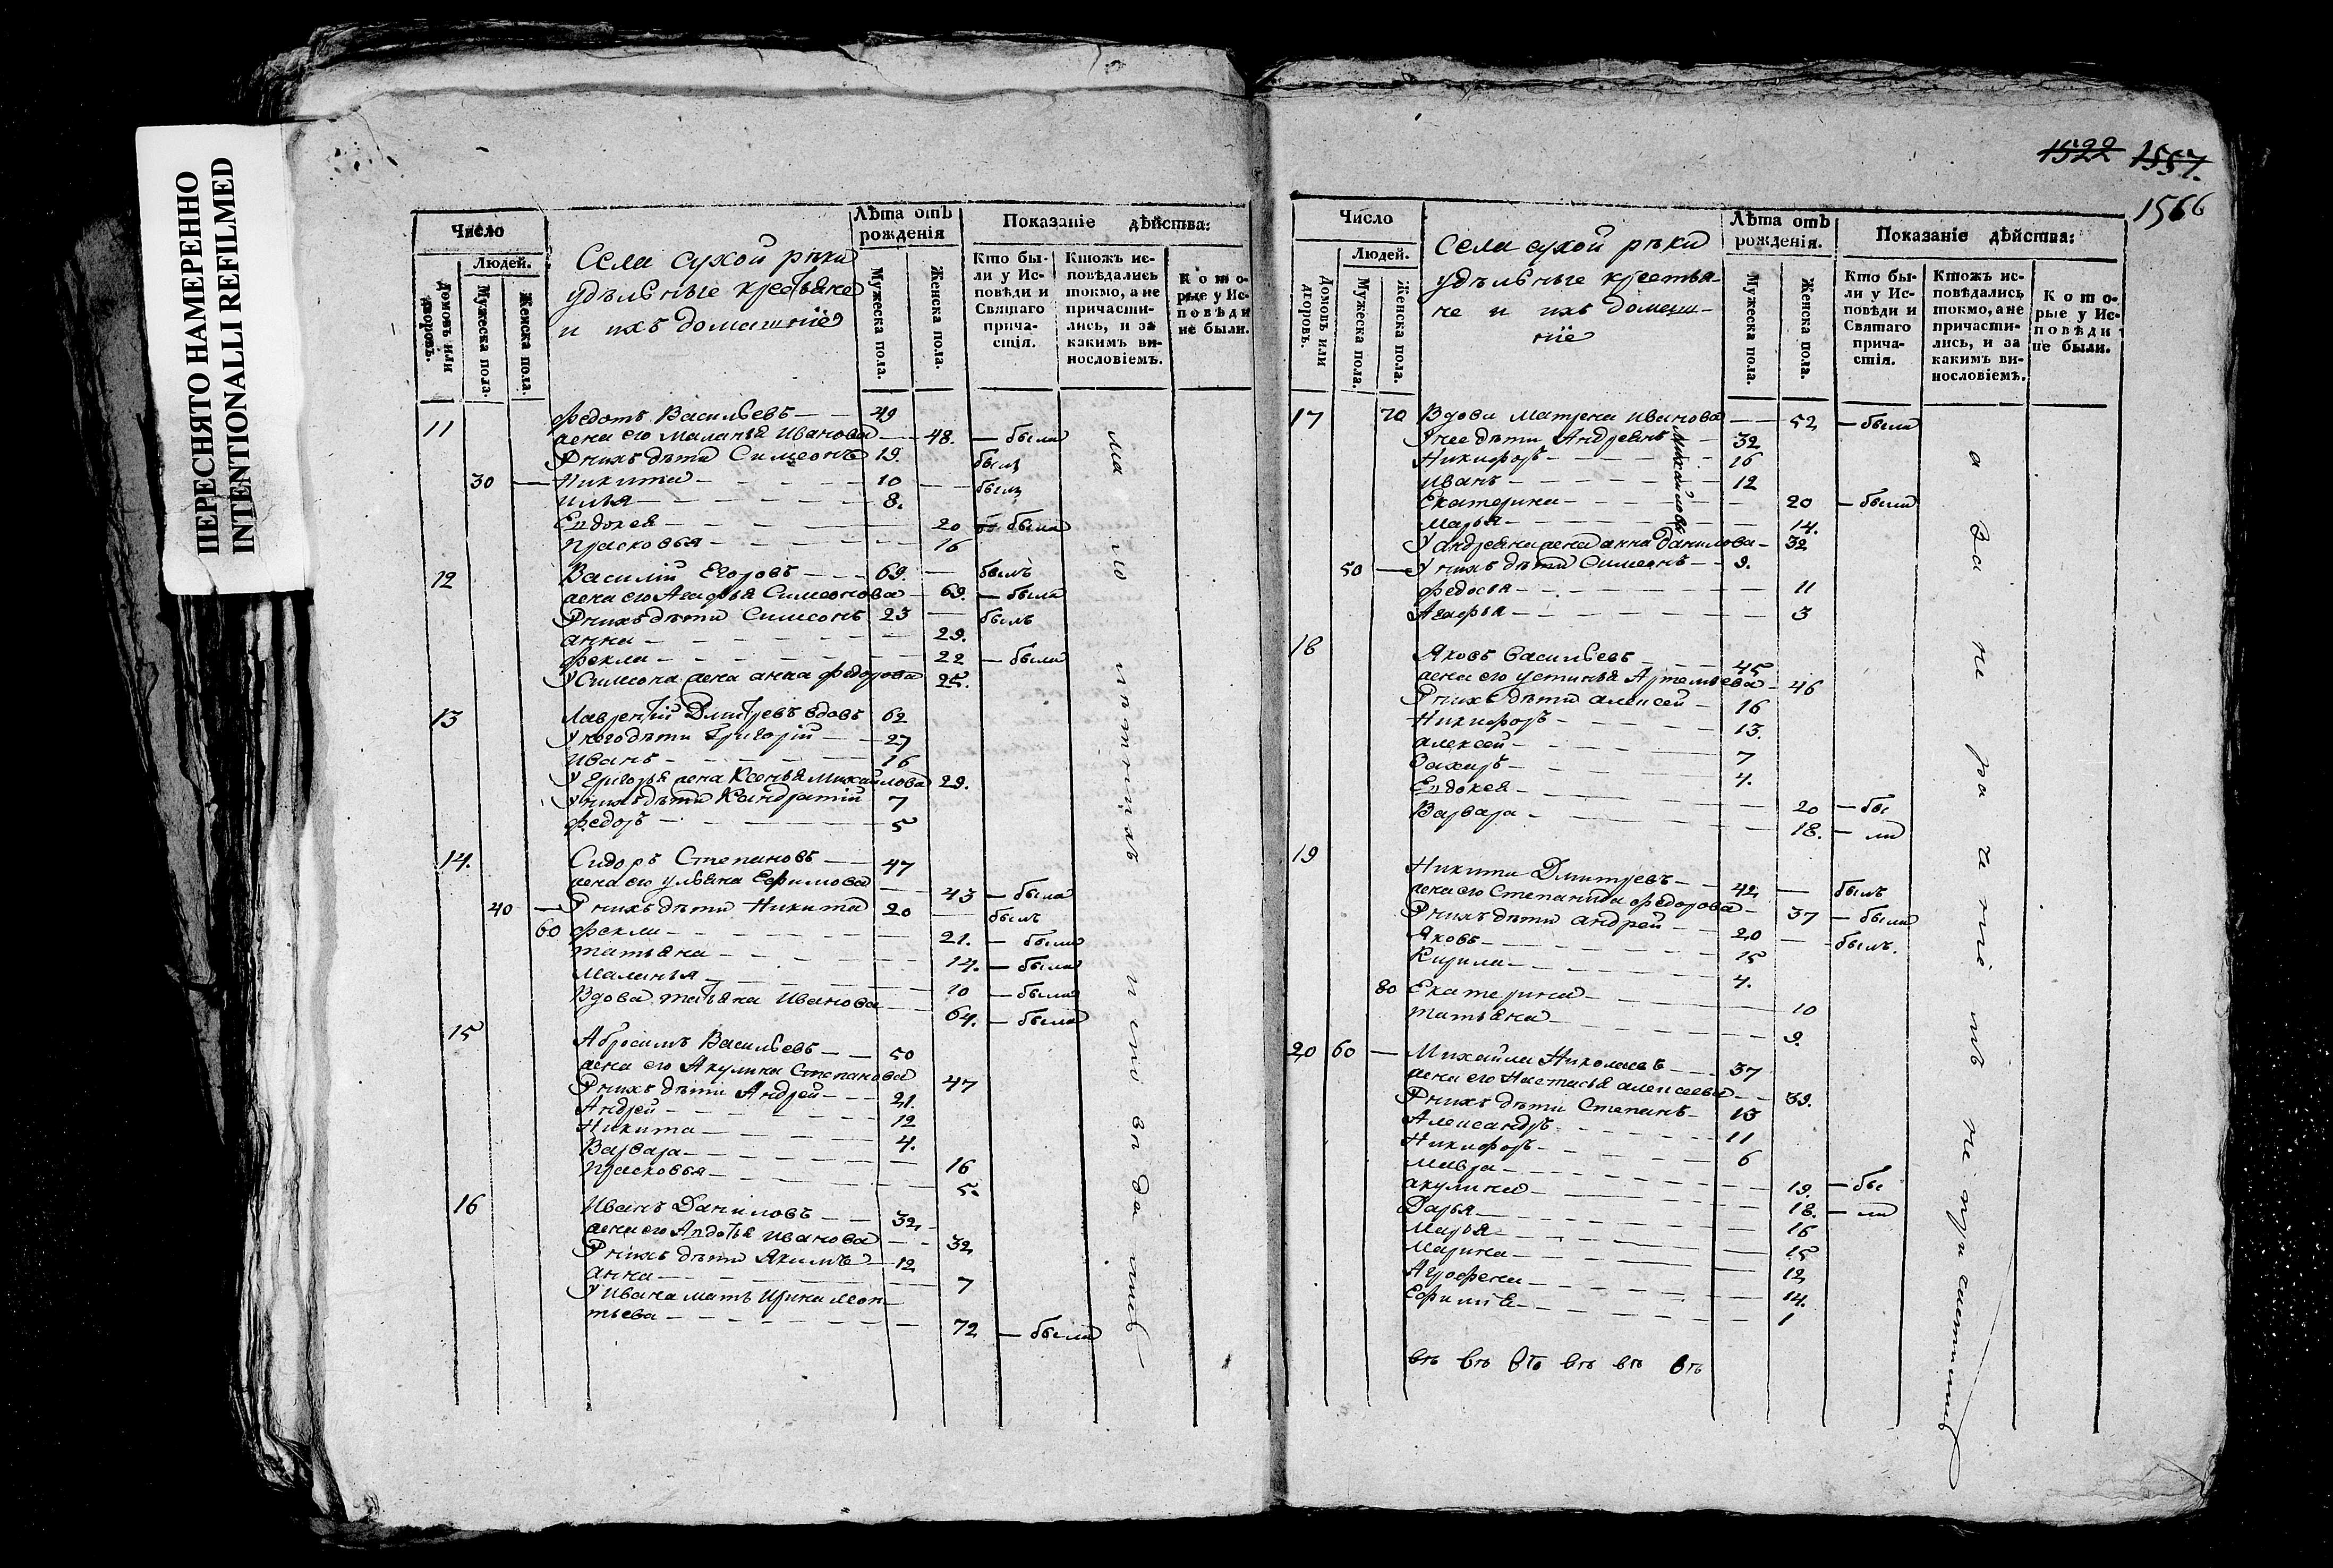 ПЕРЕСНЯТО НАМЕРЕННО
INTENTIONALLI REFILMED
Число
Людей.
Домовъ или дворовъ.
Мужеска пола.
Женска пола.
Села сухой рѣки
удѣльные крестьяне
и ихъ домашніе
Лѣта отъ рожденія
Мужеска пола.
Женска пола.
Показаніе дѣйства:
Кто были у Исповѣди и Святаго причастія.
Ктожъ исповѣдались токмо, а не причастились, и за какимъ винословіемъ.
Которые у Исповѣди не были.
11 Федотъ Васильевъ 49
жена его Маланья Иванова 48. была
У нихъ дѣти Симеонъ 19. былъ
30 Никита 10 былъ
Илья 8.
Евдокея 20 была
Прасковья 16
12 Василій Егоровъ 69. былъ
жена его Агафья Симеонова 69. была
У нихъ дѣти Симеонъ 23 былъ
анна 29.
фекла 22 была
У Симеона жена анна федорова 25.
13 Лаврентій Дмитревъ вдовъ 62
У него дѣти Григорій 27
Иванъ 16
У Григорья жена Ксенья Михайлова 29.
У нихъ дѣти Кандратій 7
федоръ 5
14. Сидоръ Степановъ 47
жена его ульяна Ефимова 43 была
40 У нихъ дѣти Никита 20 былъ
60 фекла 21. была
татьяна 14. была
Маланья 10 была
Вдова татьяна Иванова 64. была
15 Абросимъ Васильевъ 50
жена его Акулина Степанова 47
У нихъ дѣти Андрей 21.
Андрей 12
Никита 4.
Варвара 16
Прасковья 5.
16 Иванъ Даниловъ 32
жена его Авдотья Иванова 32
У нихъ дѣти Якимъ 12
анна 7
У Ивана мать Ирина леон-
тьева 72 была
1522 1557.
1566
Число
Людей.
Домовъ или дворовъ.
Мужеска пола.
Женска пола.
Села сухой рѣки
удѣльные крестья-
не и ихъ домаш-
ніе
Лѣта отъ рожденія.
Мужеска пола.
Женска пола.
Показаніе дѣйства:
Кто были у Исповѣди и Святаго причастія.
Ктожъ исповѣдались токмо, а не причастились, и за какимъ винословіемъ.
Которые у Исповѣди не были.
17 70 Вдова Матрена Иванова 52 была
У нее дѣти Андреянъ 32
Михайловы
Никифоръ 16
Иванъ 12
Екатерина 20 была
Марья 14.
У андреяна жена анна Данилова 32
50 У нихъ дѣти Симеонъ 9.
федосья 11
Агафья 3
18 Яковъ Васильевъ 45
жена его устинья Артемьева 46
У нихъ дѣти алексей 16
Никифоръ 13.
алексей 7
Захаръ 4.
Евдокея 20 бы
Варвара 18. ли
19 Никита Дмитревъ 42 былъ
жена его Степанида федорова 37 была
У нихъ дѣти андрей 20 былъ.
Яковъ 15
Кирила 4.
80 Екатерина 10
татьяна 9.
20 60 Михайла Николаевъ 37
жена его Настасья алексеева 39.
У нихъ дѣти Степанъ 13
Александръ 11
Никифоръ 6
Мавра 19. бы
акулина 18. ли
Дарья 16
Марья 15
Марина 12
Агрофена 14.
Ефимія 1
а за нераченіемъ не причастились